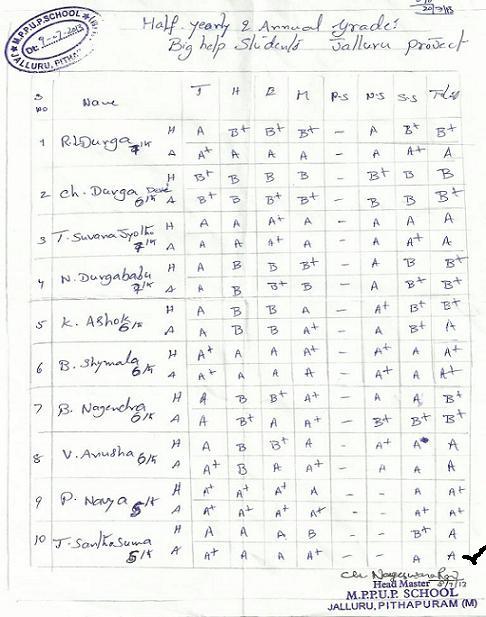 M.P.P.U.P.SCHOOL
Dt: 9-07-2013
JALLURU, PITHA
20/7/13
Half yearly & Annual Grades
Big help Students Jalluru project
S no Name T H E M P.S N.S S.S Total
1 R.L.Durga 7th H A B+ B+ B+ - A B+ B+
A A+ A A A - A A+ A
2 Ch. Durga Devi 6th H B+ B B B - B+ B B
A B+ B B+ B+ - B B B+
3 T. Suvana Jyothi 7th H A A A+ A - A A A
A A A A+ A - A A+ A
4 N. Durgababu 7th H A B B B+ - A B B+
A A B B+ B - A B+ B+
5 K. Ashok 6th H A B B A - A+ B+ B+
A A B B A+ - A B+ A
6 B. Shymala 6th H A+ A A A+ - A+ A A+
A A+ A A A+ - A+ A A+
7 B. Nagendra 6th H A B B+ A+ - A A B+
A A B+ A A+ - B+ B+ B+
8 V. Anusha 6th H A B B+ A - A+ A A
A A+ B A A+ - A A A
9 P. Navya 5th H A+ A+ A+ A - - A A+
A A+ A+ A+ A+ - - A A+
10 J. Santhasuma 5th H A A A B - - B+ A
A A+ A A A+ - - A A
Ch. Nageswara Rao
Head Master
M.P.P.U.P. SCHOOL
JALLURU, PITHAPURAM (M)